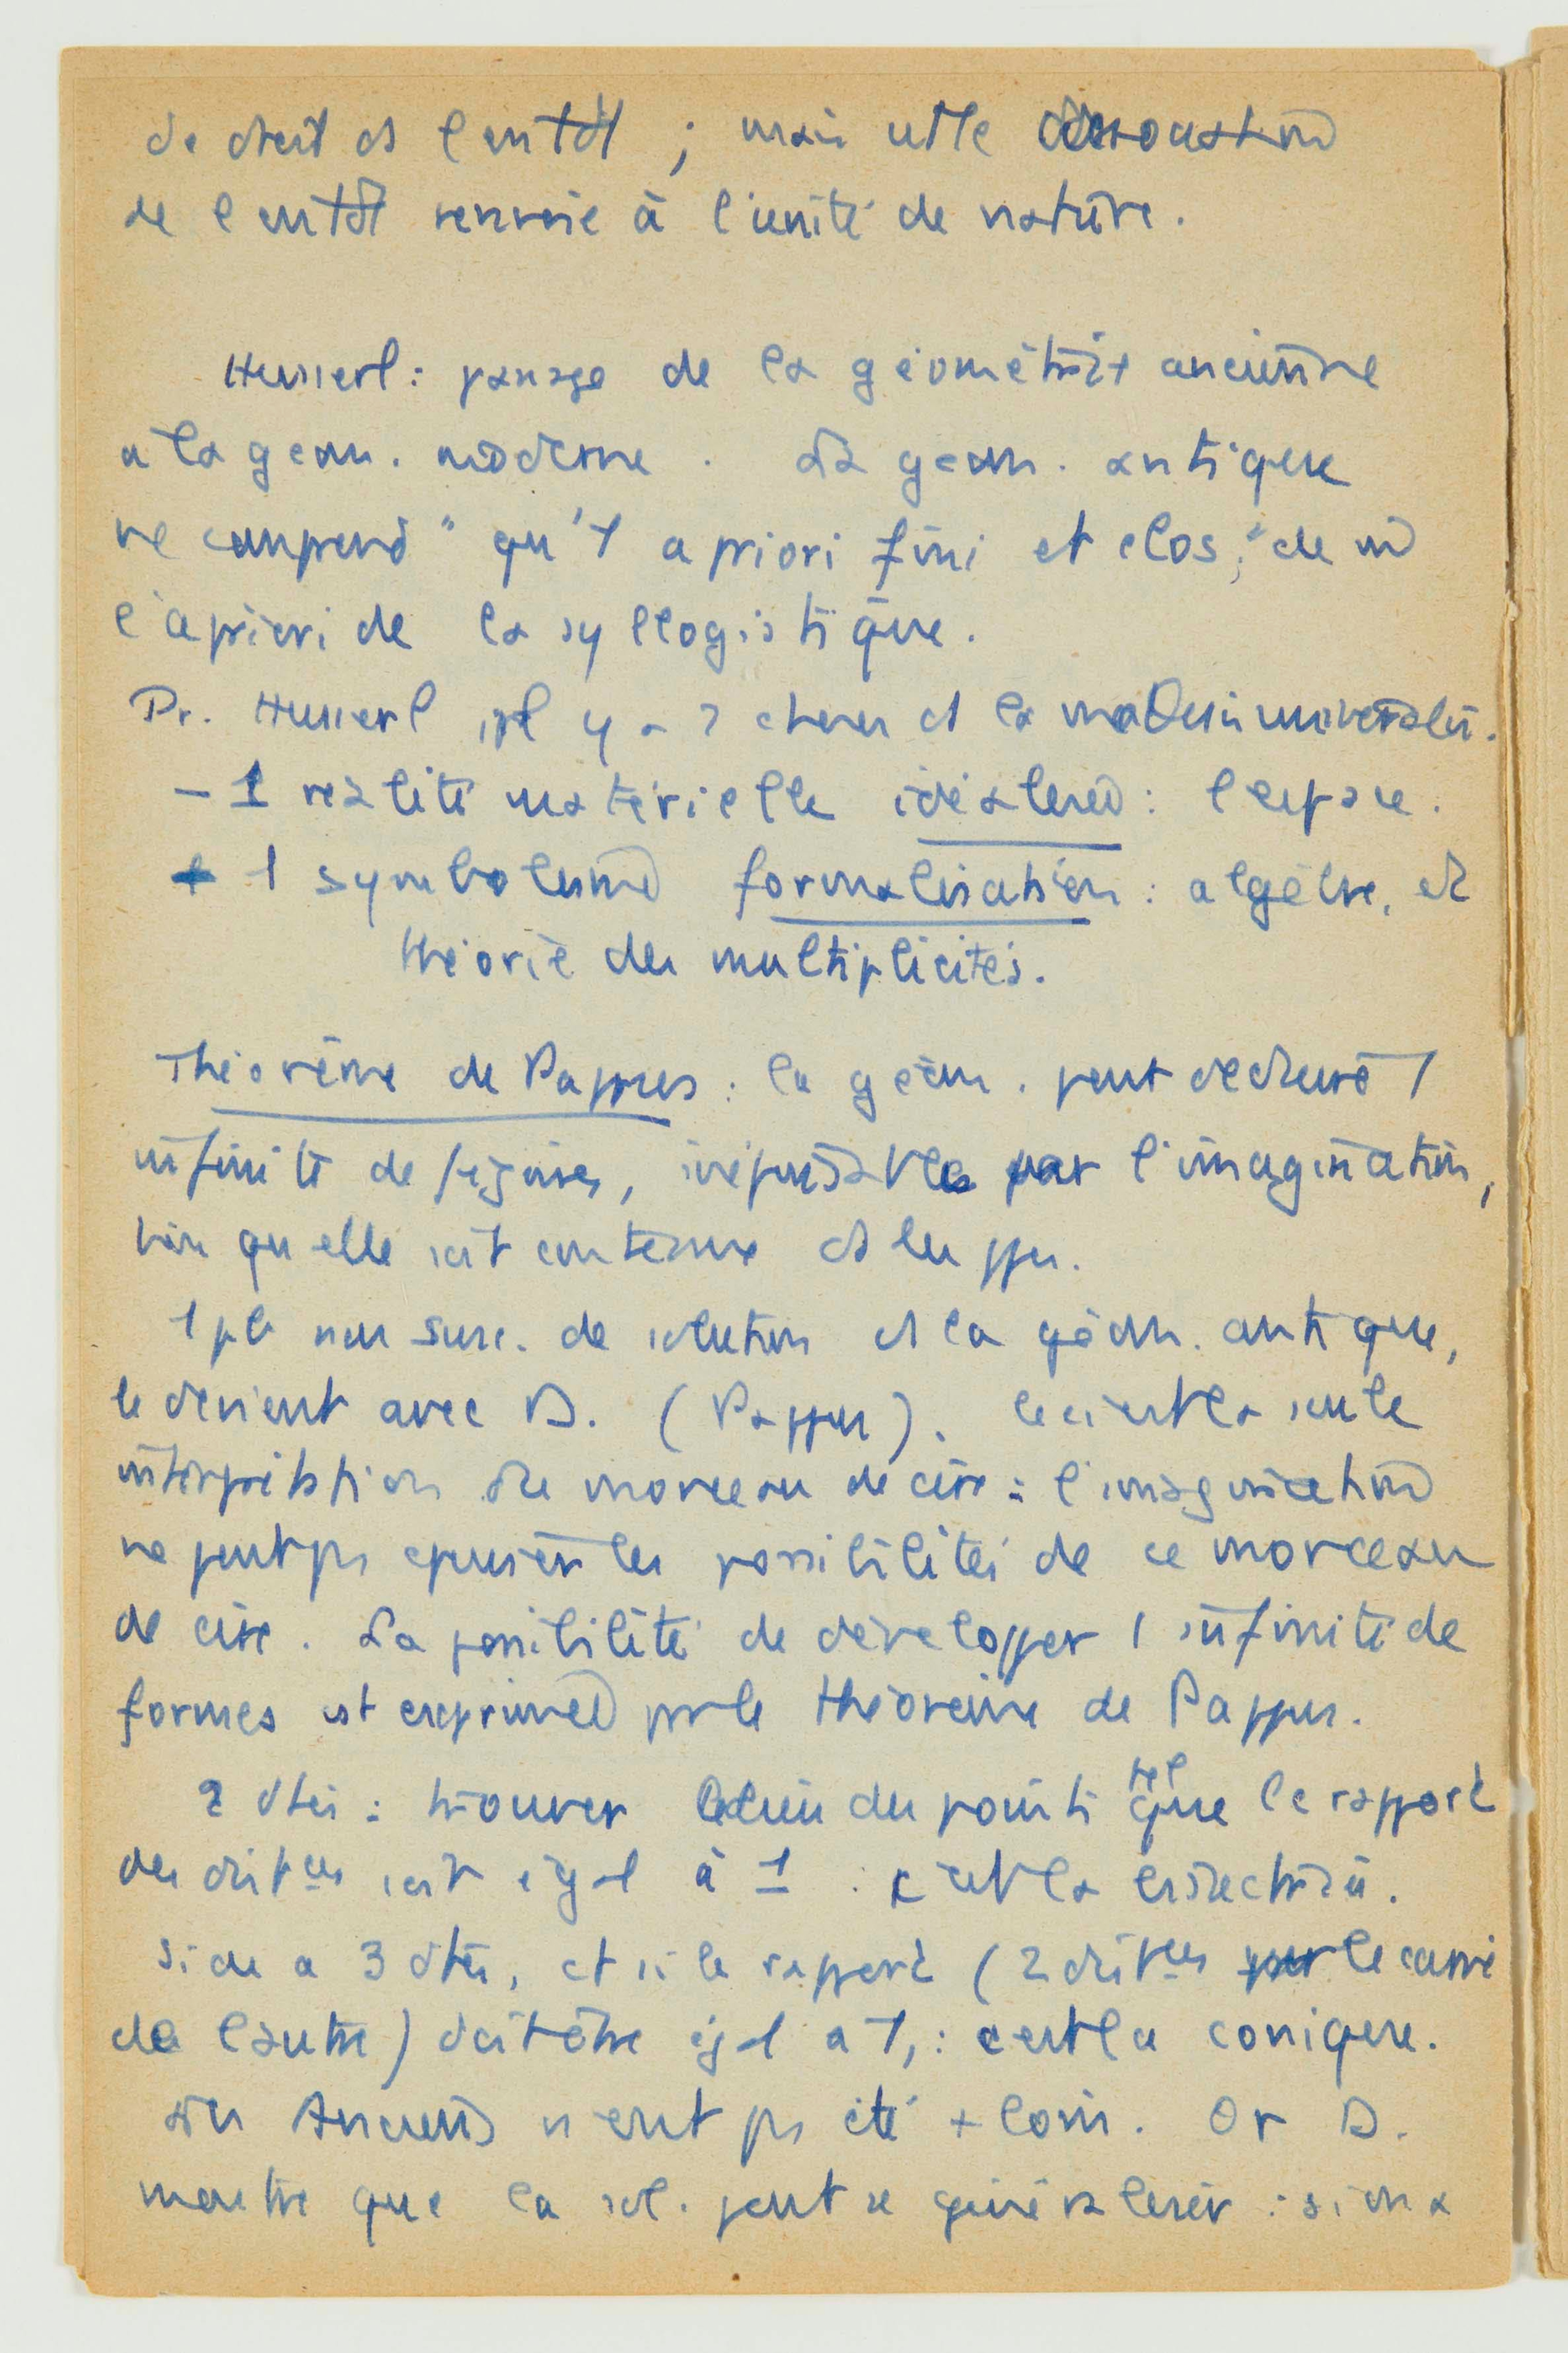 de droit ds l'entdt ; mais cette dissociation
de l'entdt renvoie à l'unité de nature.
Husserl : passage de la géométrie ancienne
à la géom. moderne. La géom. antique
ne comprend "qu'1 a priori fini et clos", de m̂
l'apriori de la syllogistique.
Pr. Husserl, il y a 2 choses ds la mathesis universalis.
- 1 réalité matérielle idéalisée : l'espace.
+ 1 symbolisme formalisation : algèbre, et
théorie des multiplicités.
Théorème de Pappus : la géom. peut déduire 1
infinité de figures, inépuisable par l'imagination,
bien qu'elle soit contenue ds les
1 pb non susc. de solution ds la géom. antique,
le devient avec D. (Pappus). Ceci est la seule
interprétation du morceau de cire : l'imagination
ne peut ps épuiser les possibilités de ce morceau
de cire. La possibilité de développer 1 infinité de
formes est exprimée par le théorème de Pappus.
2 dtes : trouver le lieu des points tel que le rapport
des distces soit égal à 1 : c'est la bissectrice.
Si on a 3 dtes, et si le rapport (2 distces par le carré
de l'autre) doit être égal à 1, : c'est la conique.
Les Anciens n'ont ps été + loin. Or D.
montre que la sol. peut se généraliser : si on a